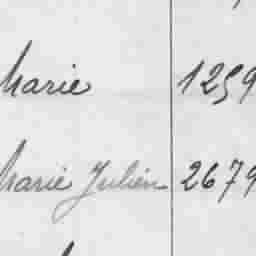 Marie 1259
Marie Julien 2679